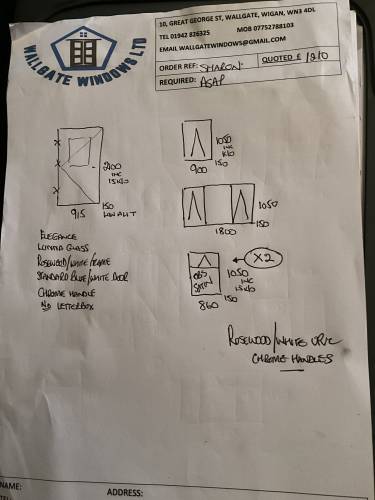 WALLGATE WINDOWS LTD
10, GREAT GEORGE ST, WALLGATE, WIGAN, WN3 4DL
TEL 01942 826325 MOB 07752788103
EMAIL WALLGATEWINDOWS@GMAIL.COM
ORDER REF: SHARON. QUOTED £ 1210
REQUIRED: ASAP
2100
INC
150
LOW
915
1050
INC
150
900
1050
150
1800
X2
OBS
SATIN
1050
INC
150
860
ELEGANCE
LUMIA GLASS
ROSEWOOD/WHITE FRAME
STANDARD BLUE/WHITE DOOR
CHROME HANDLE
NO LETTERBOX
ROSEWOOD/WHITE UPVC
CHROME HANDLES
NAME:
ADDRESS:
TEL: